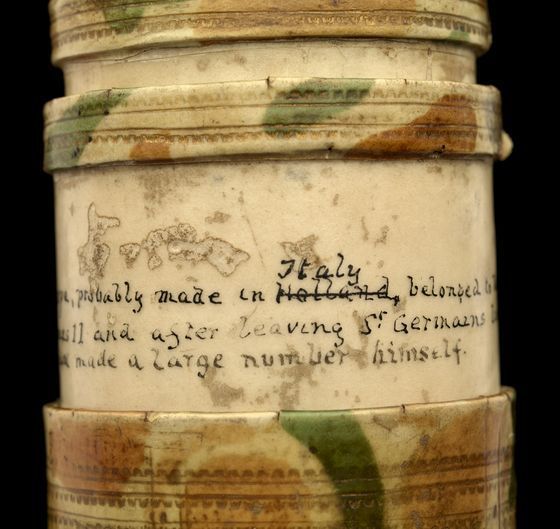 Italy
probably made in Holland, belonged to
II and after leaving St Germains
made a large number himself.